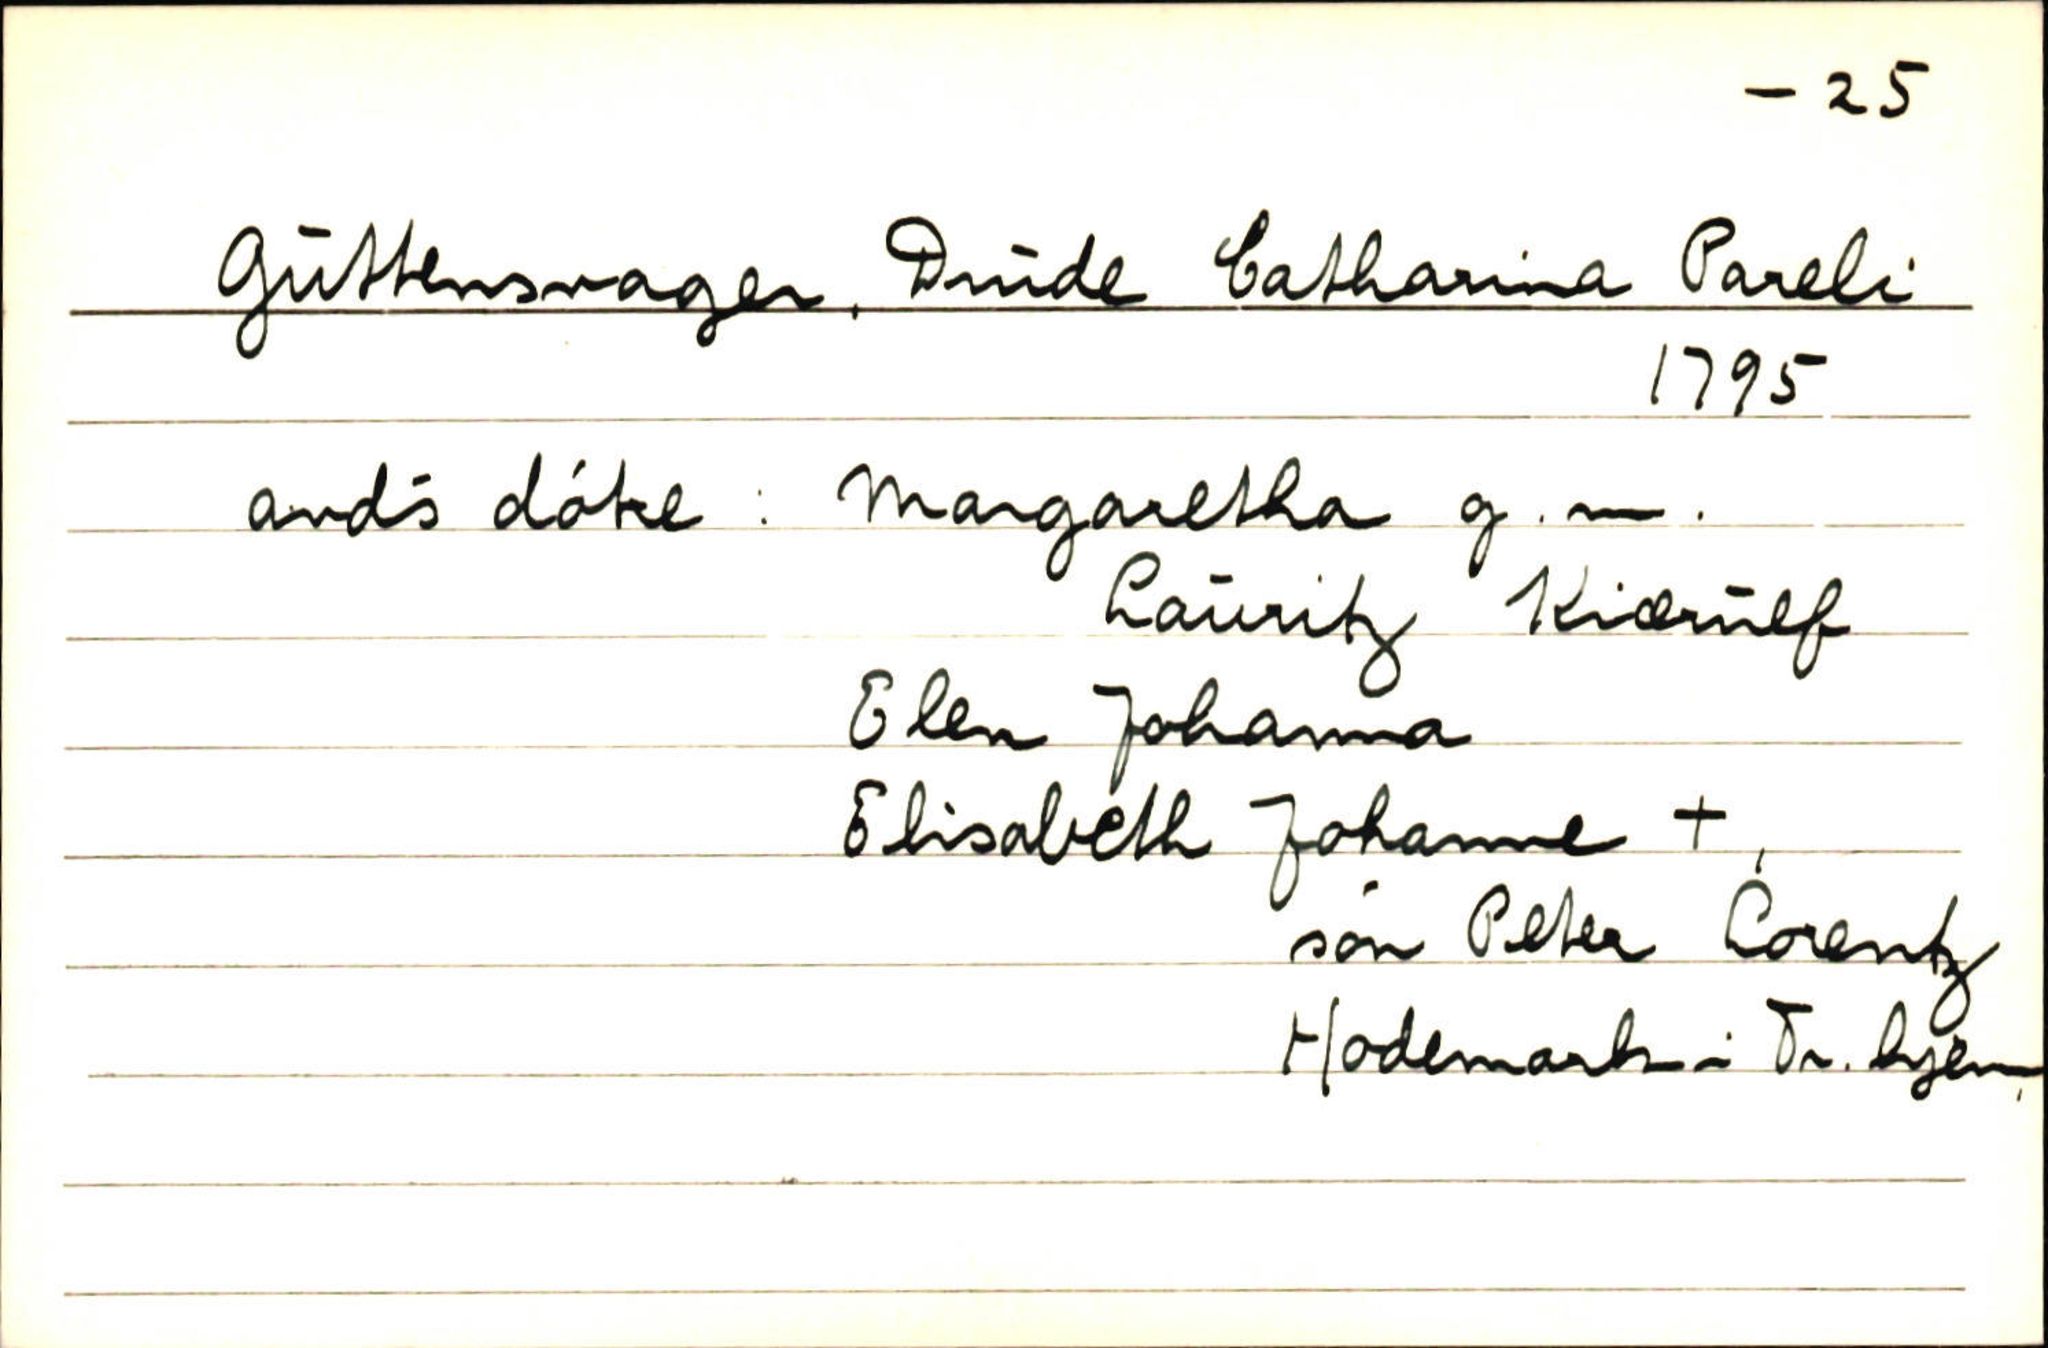 - 25
Guttensvager, Drude Catharina Pareli
1795
and's døtre : Margaretha g. m.
Lauritz Kiærulf
Elen Johanna
Elisabeth Johanne +,
søn Peter Lorentz
Hodemark i Tr. hjem,